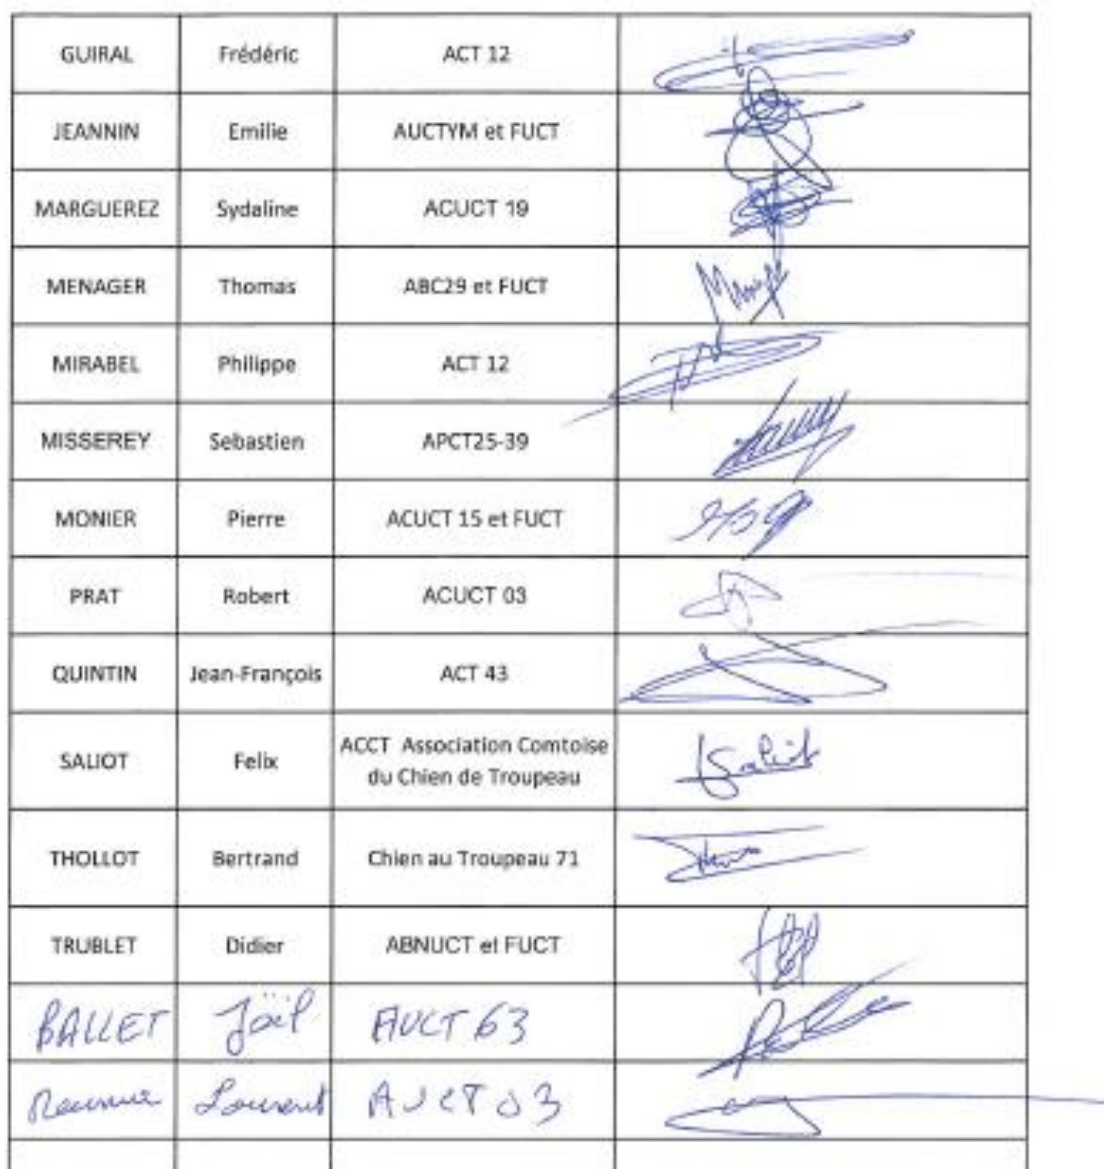 GUIRAL Frédéric ACT 12
JEANNIN Emilie AUCTYM et FUCT
MARGUEREZ Sydaline ACUCT 19
MENAGER Thomas ABC29 et FUCT
MIRABEL Philippe ACT 12
MISSEREY Sebastien APCT25-39
MONIER Pierre ACUCT 15 et FUCT
PRAT Robert ACUCT 03
QUINTIN Jean-François ACT 43
SALIOT Felix ACCT Association Comtoise
du Chien de Troupeau Saliot
THOLLOT Bertrand Chien au Troupeau 71
TRUBLET Didier ABNUCT et FUCT
BALLET Joël AUCT 63
Laurent AUCT 03